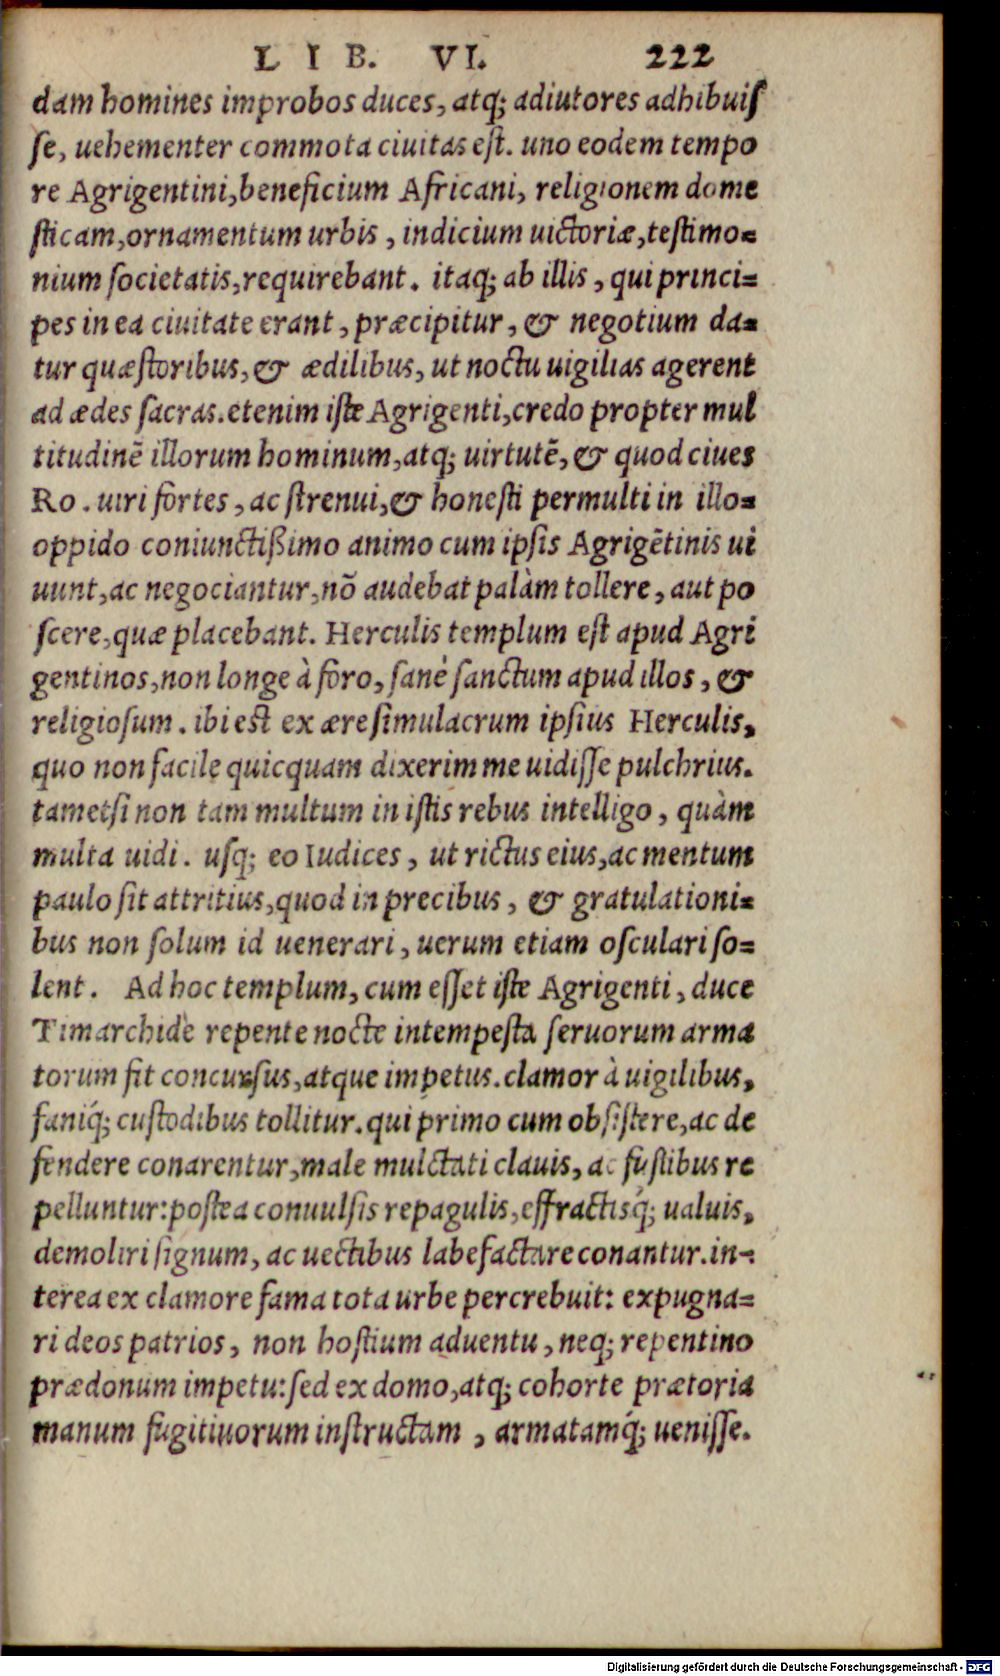 LIB. VI. 222
dam homines improbos duces, atq; adiutores adhibuiſ
ſe, uehementer commota ciuitas eſt. uno eodem tempo
re Agrigentini, beneficium Africani, religionem dome
ſticam, ornamentum urbis, indicium uictoriæ, teſtimo=
nium ſocietatis, requirebant. itaq; ab illis, qui princi=
pes in ea ciuitate erant, præcipitur, & negotium da=
tur quæſtoribus, & ædilibus, ut noctu uigilias agerent
ad ædes ſacras. etenim iſte Agrigenti, credo propter mul
titudinẽ illorum hominum, atq; uirtutẽ, & quod ciues
Ro. uiri fortes, ac ſtrenui, & honeſti permulti in illo=
oppido coniunctißimo animo cum ipſis Agrigẽtinis ui
uunt, ac negociantur, nõ audebat palàm tollere, aut po
ſcere, quæ placebant. Herculis templum eſt apud Agri
gentinos, non longe à foro, ſanè ſanctum apud illos, &
religioſum. ibi eſt ex ære ſimulacrum ipſius Herculis,
quo non facile quicquam dixerim me uidiſſe pulchrius.
tametſi non tam multum in iſtis rebus intelligo, quàm
multa uidi. uſq; eo Iudices, ut rictus eius, ac mentum
paulo ſit attritius, quod in precibus, & gratulationi=
bus non ſolum id uenerari, uerum etiam oſculari ſo=
lent. Ad hoc templum, cum eſſet iſte Agrigenti, duce
Timarchide repente nocte intempeſta ſeruorum arma
torum fit concurſus, atque impetus. clamor à uigilibus,
faniq́; cuſtodibus tollitur. qui primo cum obſiſtere, ac de
fendere conarentur, male mulctati clauis, ac fuſtibus re
pelluntur: poſtea conuulſis repagulis, effractisq́; ualuis,
demoliri ſignum, ac uectibus labefactare conantur. in=
terea ex clamore fama tota urbe percrebuit: expugna=
ri deos patrios, non hoſtium aduentu, neq; repentino
prædonum impetu: ſed ex domo, atq; cohorte prætoria
manum fugitiuorum inſtructam, armatamq́; ueniſſe.
Digitalisierung gefördert durch die Deutsche Forschungsgemeinschaft - DFG